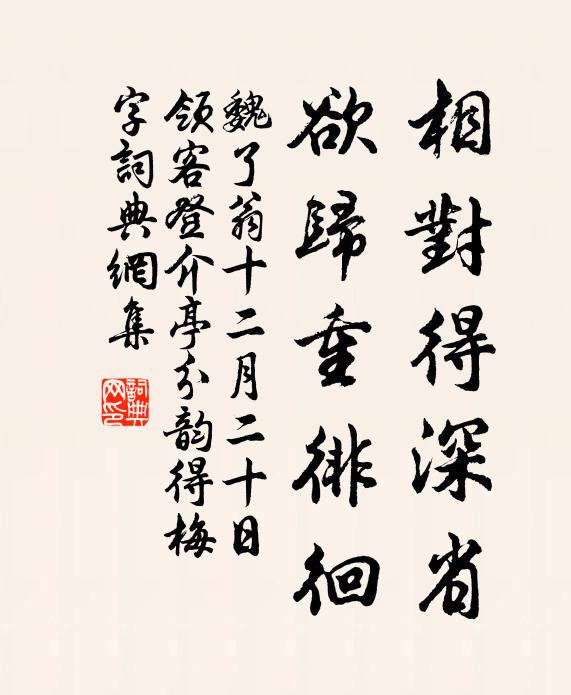 相對得深省
欲歸重徘徊
魏了翁十二月二十日
領客登介亭分韵得梅
字詞典網集
詞典网印